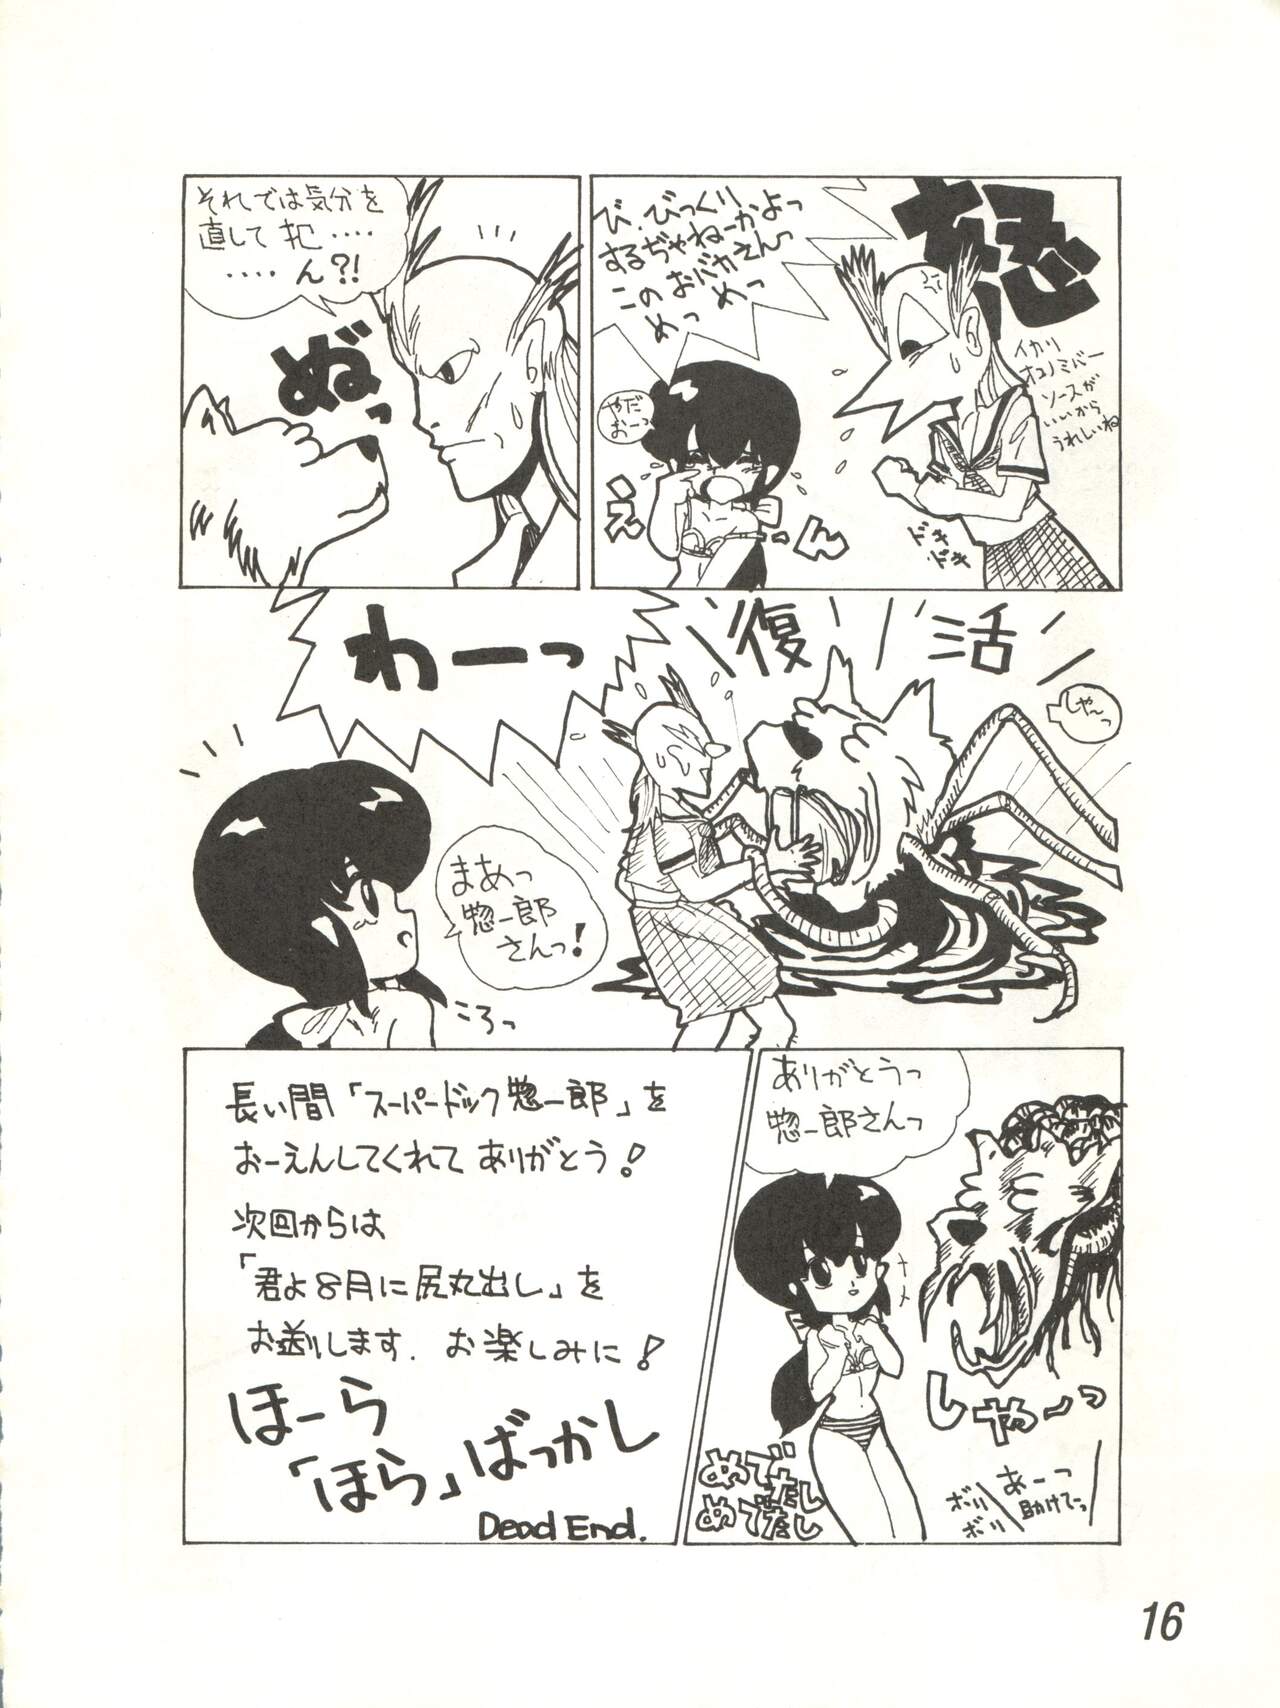 び、びっくり
するぢゃねーかよっ
このおバカえんっ
めっめっ
怒
イカリ
ソースが
いいから
うれしいね
やだ
おーっ
え
ーん
ドキ
ドキ
それでは気分を
直して 犯‥‥
‥‥ん?!
ぬ゛っ
復活
しゃーっ
わーっ
まあっ
惣一郎
さんっ!
ころっ
ありがとうっ
惣一郎さんっ
しゃーっ
あーっ
助けてっ
ボリ
ボリ
めでたし
めでたし
長い間「スーパードック惣一郎」を
おーえんしてくれて ありがとう!
次回からは
「君よ8月に尻丸出し」を
お送りします. お楽しみに!
ほーら
「ほら」ばっかし
Dead End.
16